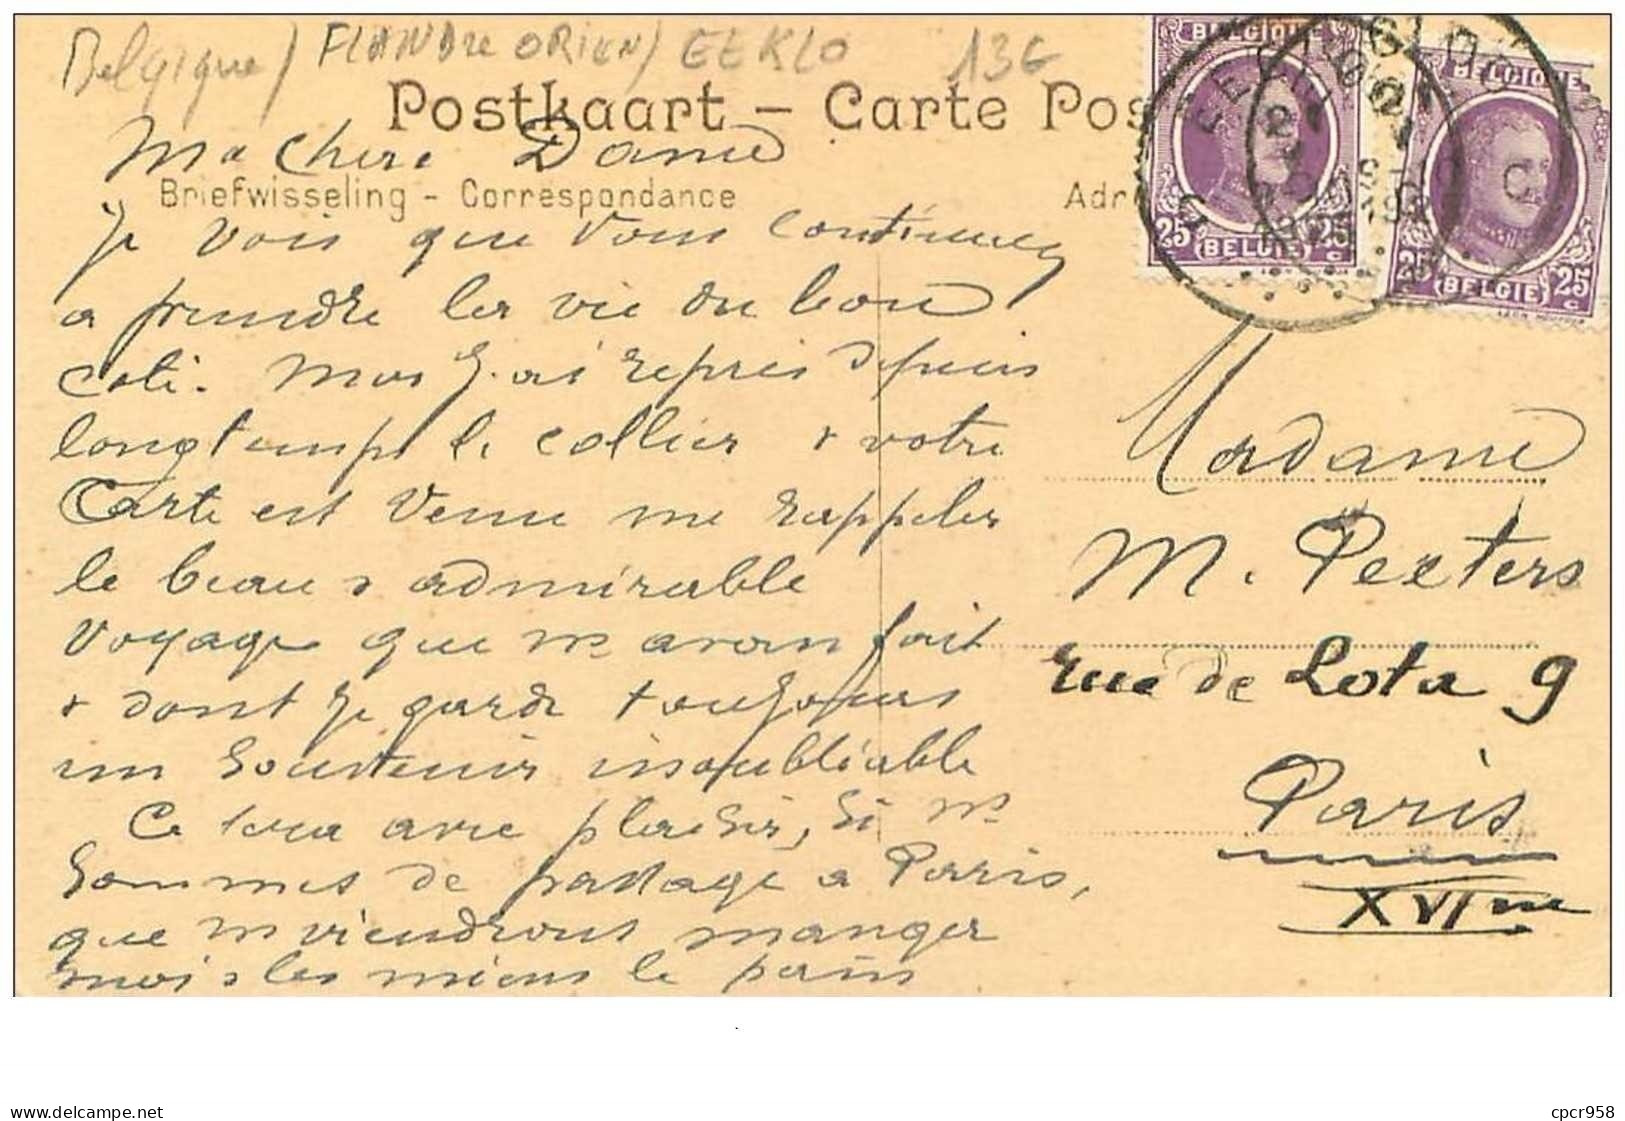 Belgique / FLANDRE ORIEN / EEKLO 13G
Postkaart – Carte Pos
Ma chere Dame
Briefwisseling - Correspondance
Adr
BELGIQUE
25 (BELGIE) 25
BELGIQUE
25 (BELGIE) 25
Je vois que vous continuez
a prendre la vie du bon
coté. Moi J'ai repris depuis
longtemps le collier & votre
Carte est venue me rappeler
le beau & admirable
voyage que ns avons fait
& dont je garde toujours
un souvenir inoubliable
Ce sera avec plaisir, si ns
sommes de passage a Paris,
que ns viendrons manger
moi & les miens le pain
Madame
M. Peeters
rue de Lota 9
Paris
XVIme
www.delcampe.net
cpcr958